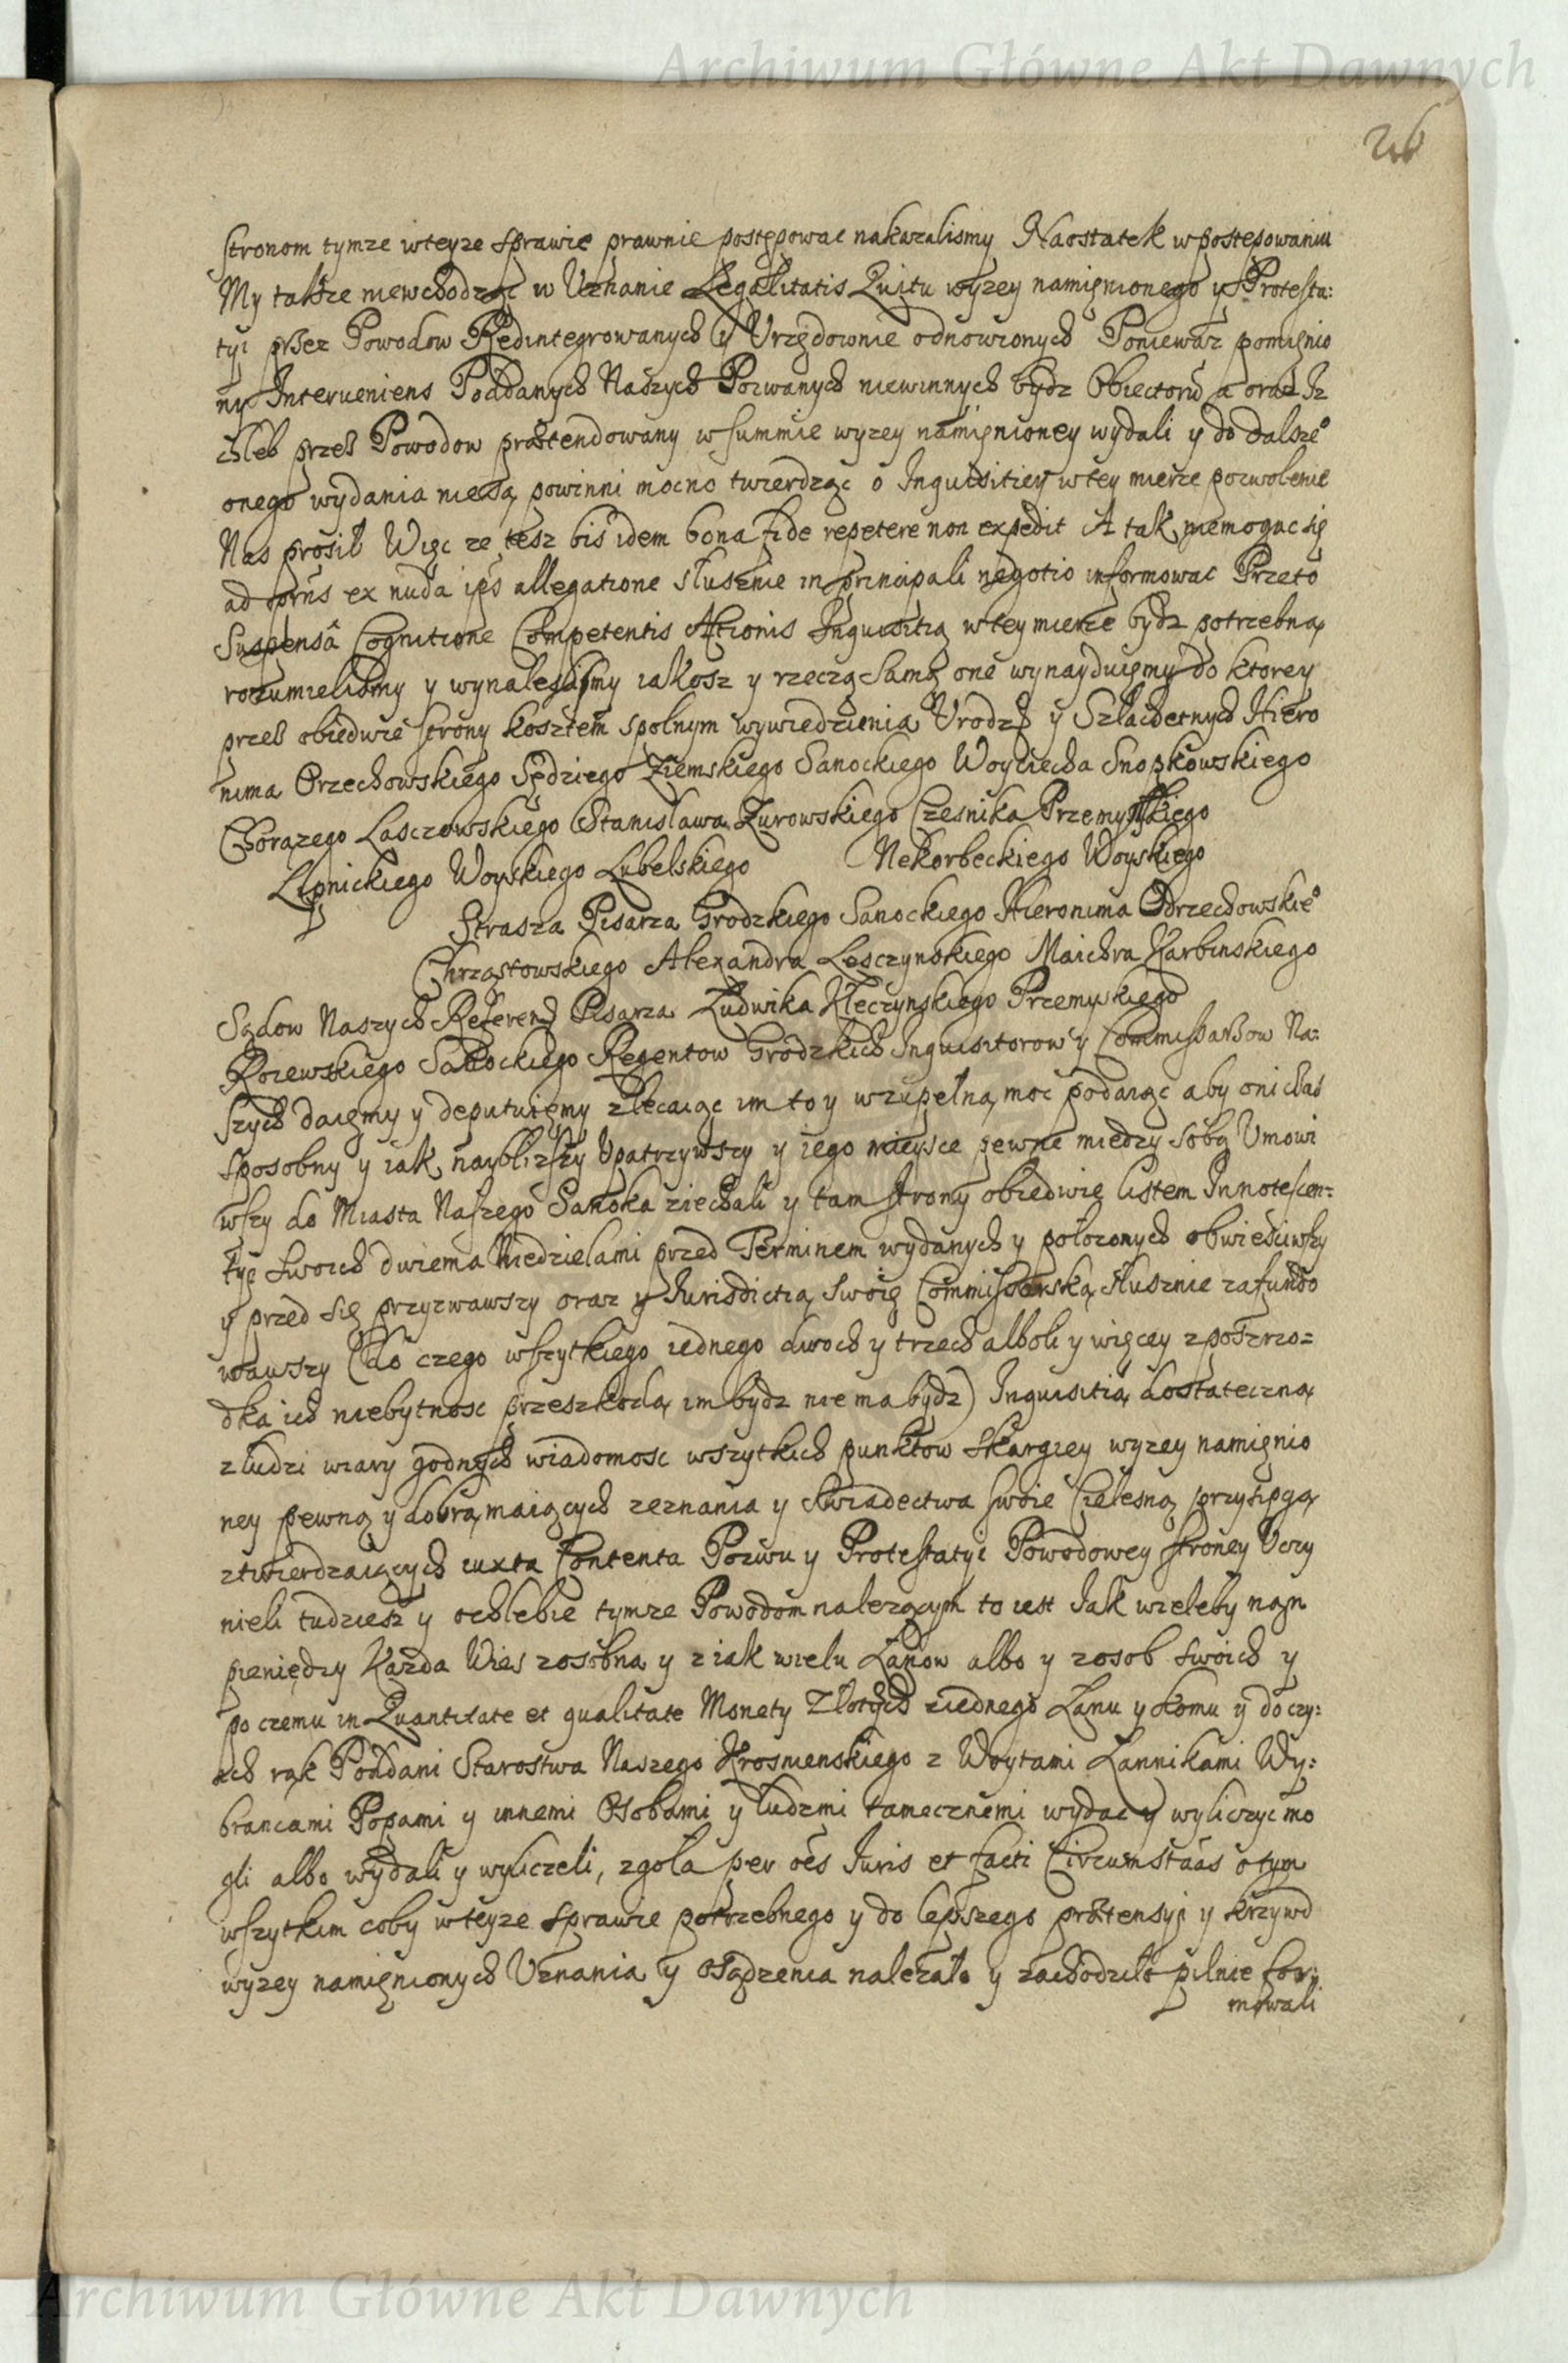 Archiwum Główne Akt Dawnych
26
stronom tymze wteyze sprawie prawnie postępowac nakazalismy Naostatek wpostępowaniu
My takze niewchodząc w Uznanie Legalitatis Quitu wyzey namięnionego y Protesta:
tyi przez Powodow Redintegrowanych y Vrzędownie odnowionych Poniewaz pomięnio
ny Interueniens Poddanych Naszych Pozwanych niewinnych bydz Obiectorũ a oraz Iz
chleb przes Powodow prætendowany w summie wyzey namięnioney wydali y do dalsze°
onego wydania niesą powinni mocno twierdząc o Inquisitiey wtey mierze pozwolenie
Nas prosił Więc ze tesz bis idem bona fide repetere non expedit A tak niemogąc się
ad pñs ex nuda ips allegatione słusznie in principali negotio informowac Przeto
Suspensâ Cognitione Competentis Actionis Inquisitią wtey mierze bydz potrzebną
rozumielismy y wynalezlismy iakosz y rzeczą samą onę wynayduięmy do ktorey
przes obiedwie strony kosztem spolnym wywiedzienia Vrodz y Szlachetnych Hiero
nima Orzechowskiego Sędziego Ziemskiego Sanockiego Woyciecha Snopkowskiego
Chorązego Lasczowskiego Stanisława Zurowskiego Czesnika Przemyskiego
Lipnickiego Woyskiego Lubelskiego Nekorbeckiego Woyskiego
Strasza Pisarza Grodzkiego Sanockiego Hieronima Odrzechowskie°
Chrząstowskiego Alexandra Lesczynskiego Maichra Karbinskiego
Sądow Naszych Referend Pisarza Ludwika Kleczynskiego Przemyskiego
Rozewskiego Sanockiego Regentow Grodzkich Inquisitorow y Commissarzow Na:
szych daięmy y deputuięmy zlecaiąc im to y wzupełną moc podaiąc aby oni czas
sposobny y iak nayblizszy Upatrzywszy y iego mieysce pewne miedzy sobą Umowi
wszy do Miasta Naszego Sanoka ziechali y tam strony obiedwie listem Innotescen=
tyę swoich dwiema Niedzielami przed Terminem wydanych y połozonych obwieściwszy
y przed się przyzwawszy oraz y Iurisdictią swoię Commissarską słusznie zafundo
wawszy (do czego wszytkiego iednego dwoch y trzech alboli y więcey zposzrzo=
dka ich niebytnosc przeszkodą im bydz nie ma bydz) Inquisitią dostateczną
z ludzi wiary godnych wiadomosc wszytkich punktow skargiey wyzey namięnio
ney pewną y dobrą maiących zeznania y swiadectwa swoie Cielesną przysięgą
ztwierdzaiących iuxta Contenta Pozwu y Protestatyi Powodowey stroney Uczy
nieli tudziesz y ochlebie tymze Powodom nalezącym to iest Iak wieleby nań
pieniędzy Kazda Wies zosobna y z iak wielu Łanow albo y zosob swoich y
po czemu in Quantitate et qualitate Monety Złotych ziednego Łanu y komu y doczy:
ich rąk Poddani Starostwa Naszego Krosnienskiego z Woytami Łannikami Wy:
brancami Popami y innemi Osobami y ludzmi tamecznemi wydac y wyliczyc mo
gli albo wydali y wyliczeli, zgoła per oẽs Iuris et facti Circumstãas o tym
wszytkim coby wteyze sprawie potrzebnego y do lepszego prætensyi y krzywd
wyzey namięnionych Uznania y osądzenia nalezało y zachodziło pilnie for:
mowali
Archiwum Główne Akt Dawnych